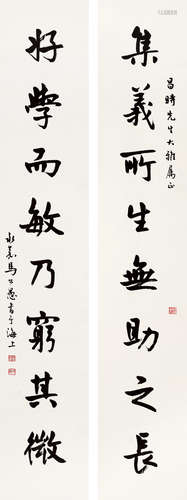 昌時先生大雅属正
集義所生無助之長
好學而敏乃窮其微
永嘉馬公愚書于海上